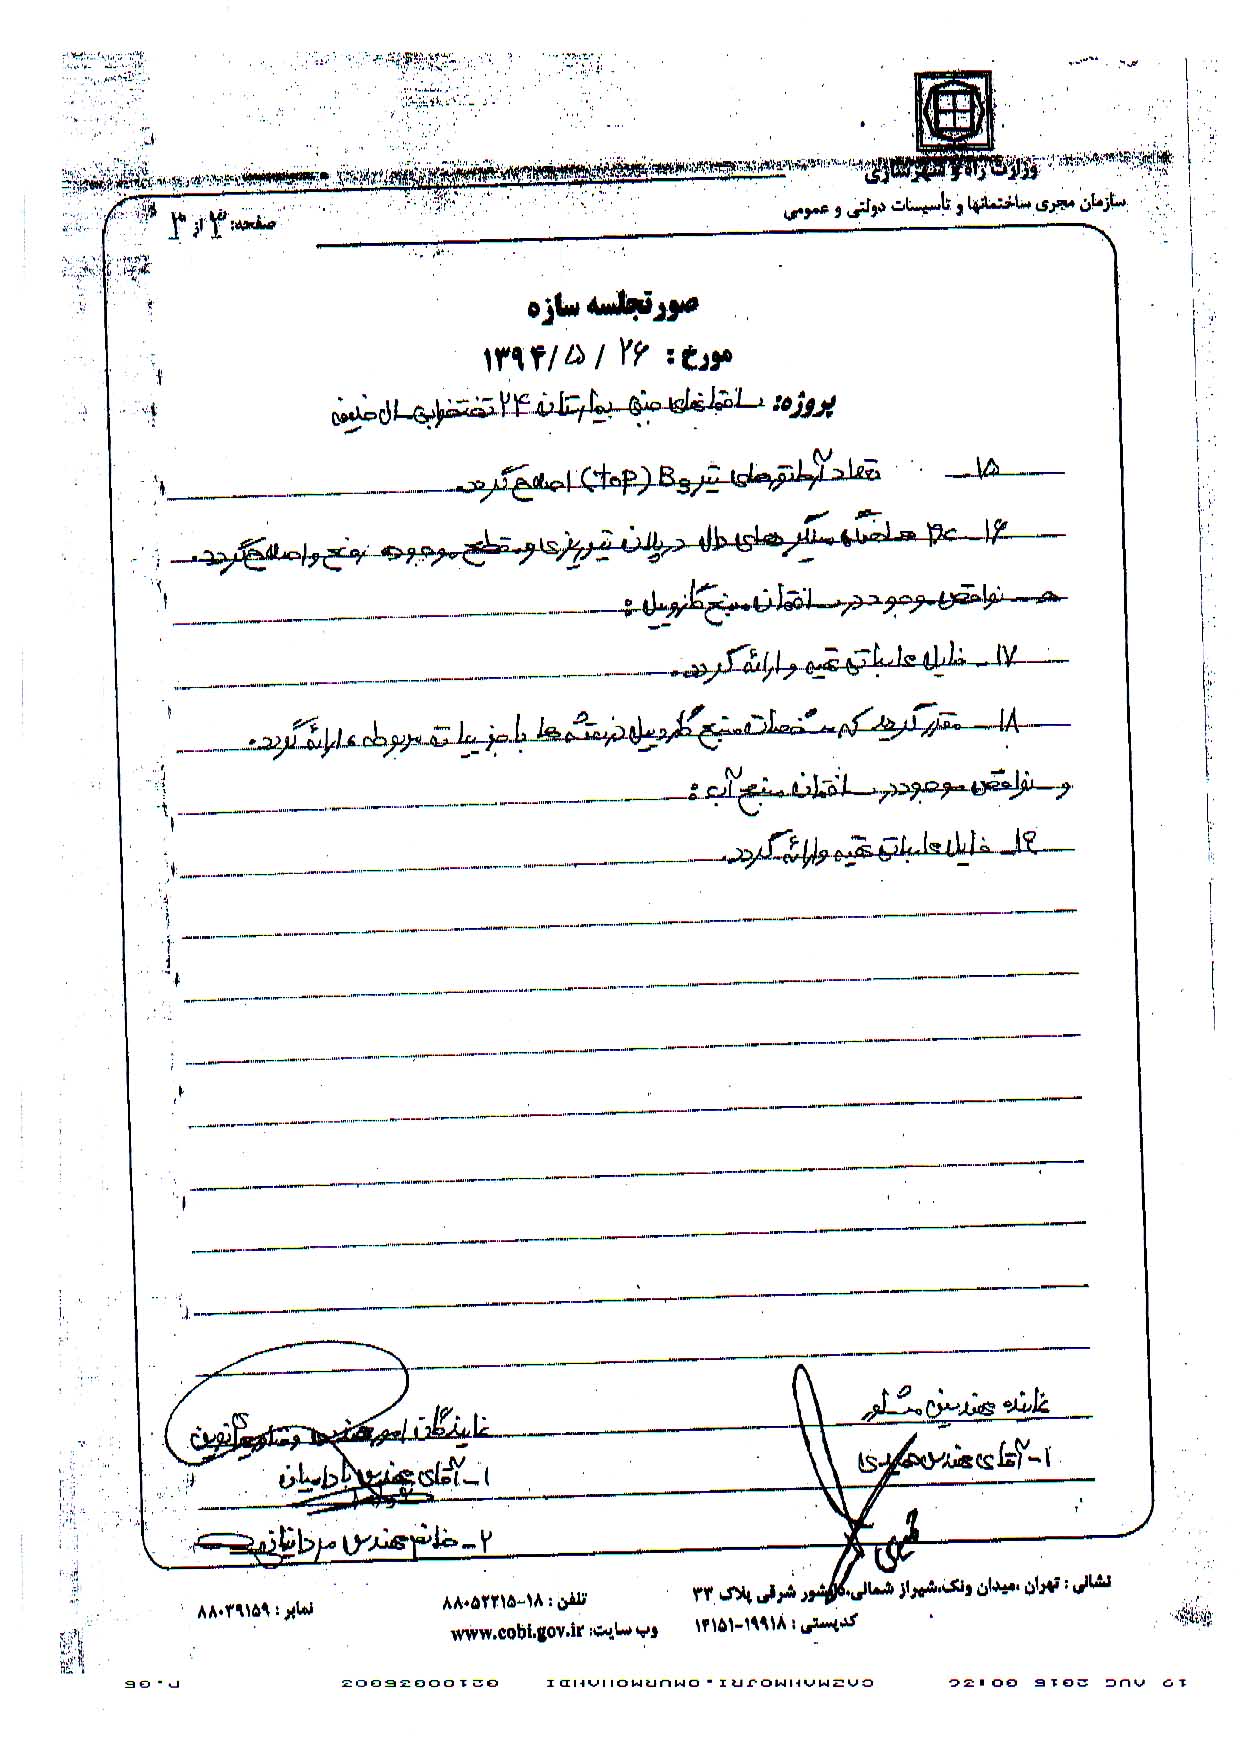 وزارت راه و شهرسازی
سازمان مجری ساختمانها و تأسیسات دولتی و عمومی
صفحه: ۳ از ۳
صورتجلسه سازه
مورخ: ۲۶ / ۵ / ۱۳۹۴
پروژه: ساختمانهای جنبی بیمارستان ۲۴ تختخوابی
۱۵_ تعداد آرماتورهای تیر B9 (top) اصلاح گردد.
۱۶_ میلگردهای دال در پلان تیرریزی و مقطع موجود، رفع و اصلاح گردد.
هـ_ نواقص موجود در ساختمان منبع گازوییل:
۱۷_ فایل محاسباتی تهیه و ارائه گردد.
۱۸_ مقرر گردید که مشخصات منبع گازوییل در نقشه ها با جزییات مربوطه، ارائه گردد.
و_ نواقص موجود در ساختمان منبع آب:
۱۹_ فایل محاسباتی تهیه و ارائه گردد.
نماینده مهندسین مشاور
۱_ آقای مهندس
نمایندگان امور مهندسی و فناوریهای نوین
۱_ آقای مهندس
۲_ خانم مهندس
نشانی: تهران، میدان ونک، شیراز شمالی، دانشور شرقی پلاک ۳۳
تلفن: ۱۸-۸۸۰۵۲۲۱۵
نمابر: ۸۸۰۳۹۱۵۹
کدپستی: ۱۹۹۱۸-۱۴۱۵۱
وب سایت: www.cobi.gov.ir
P.06